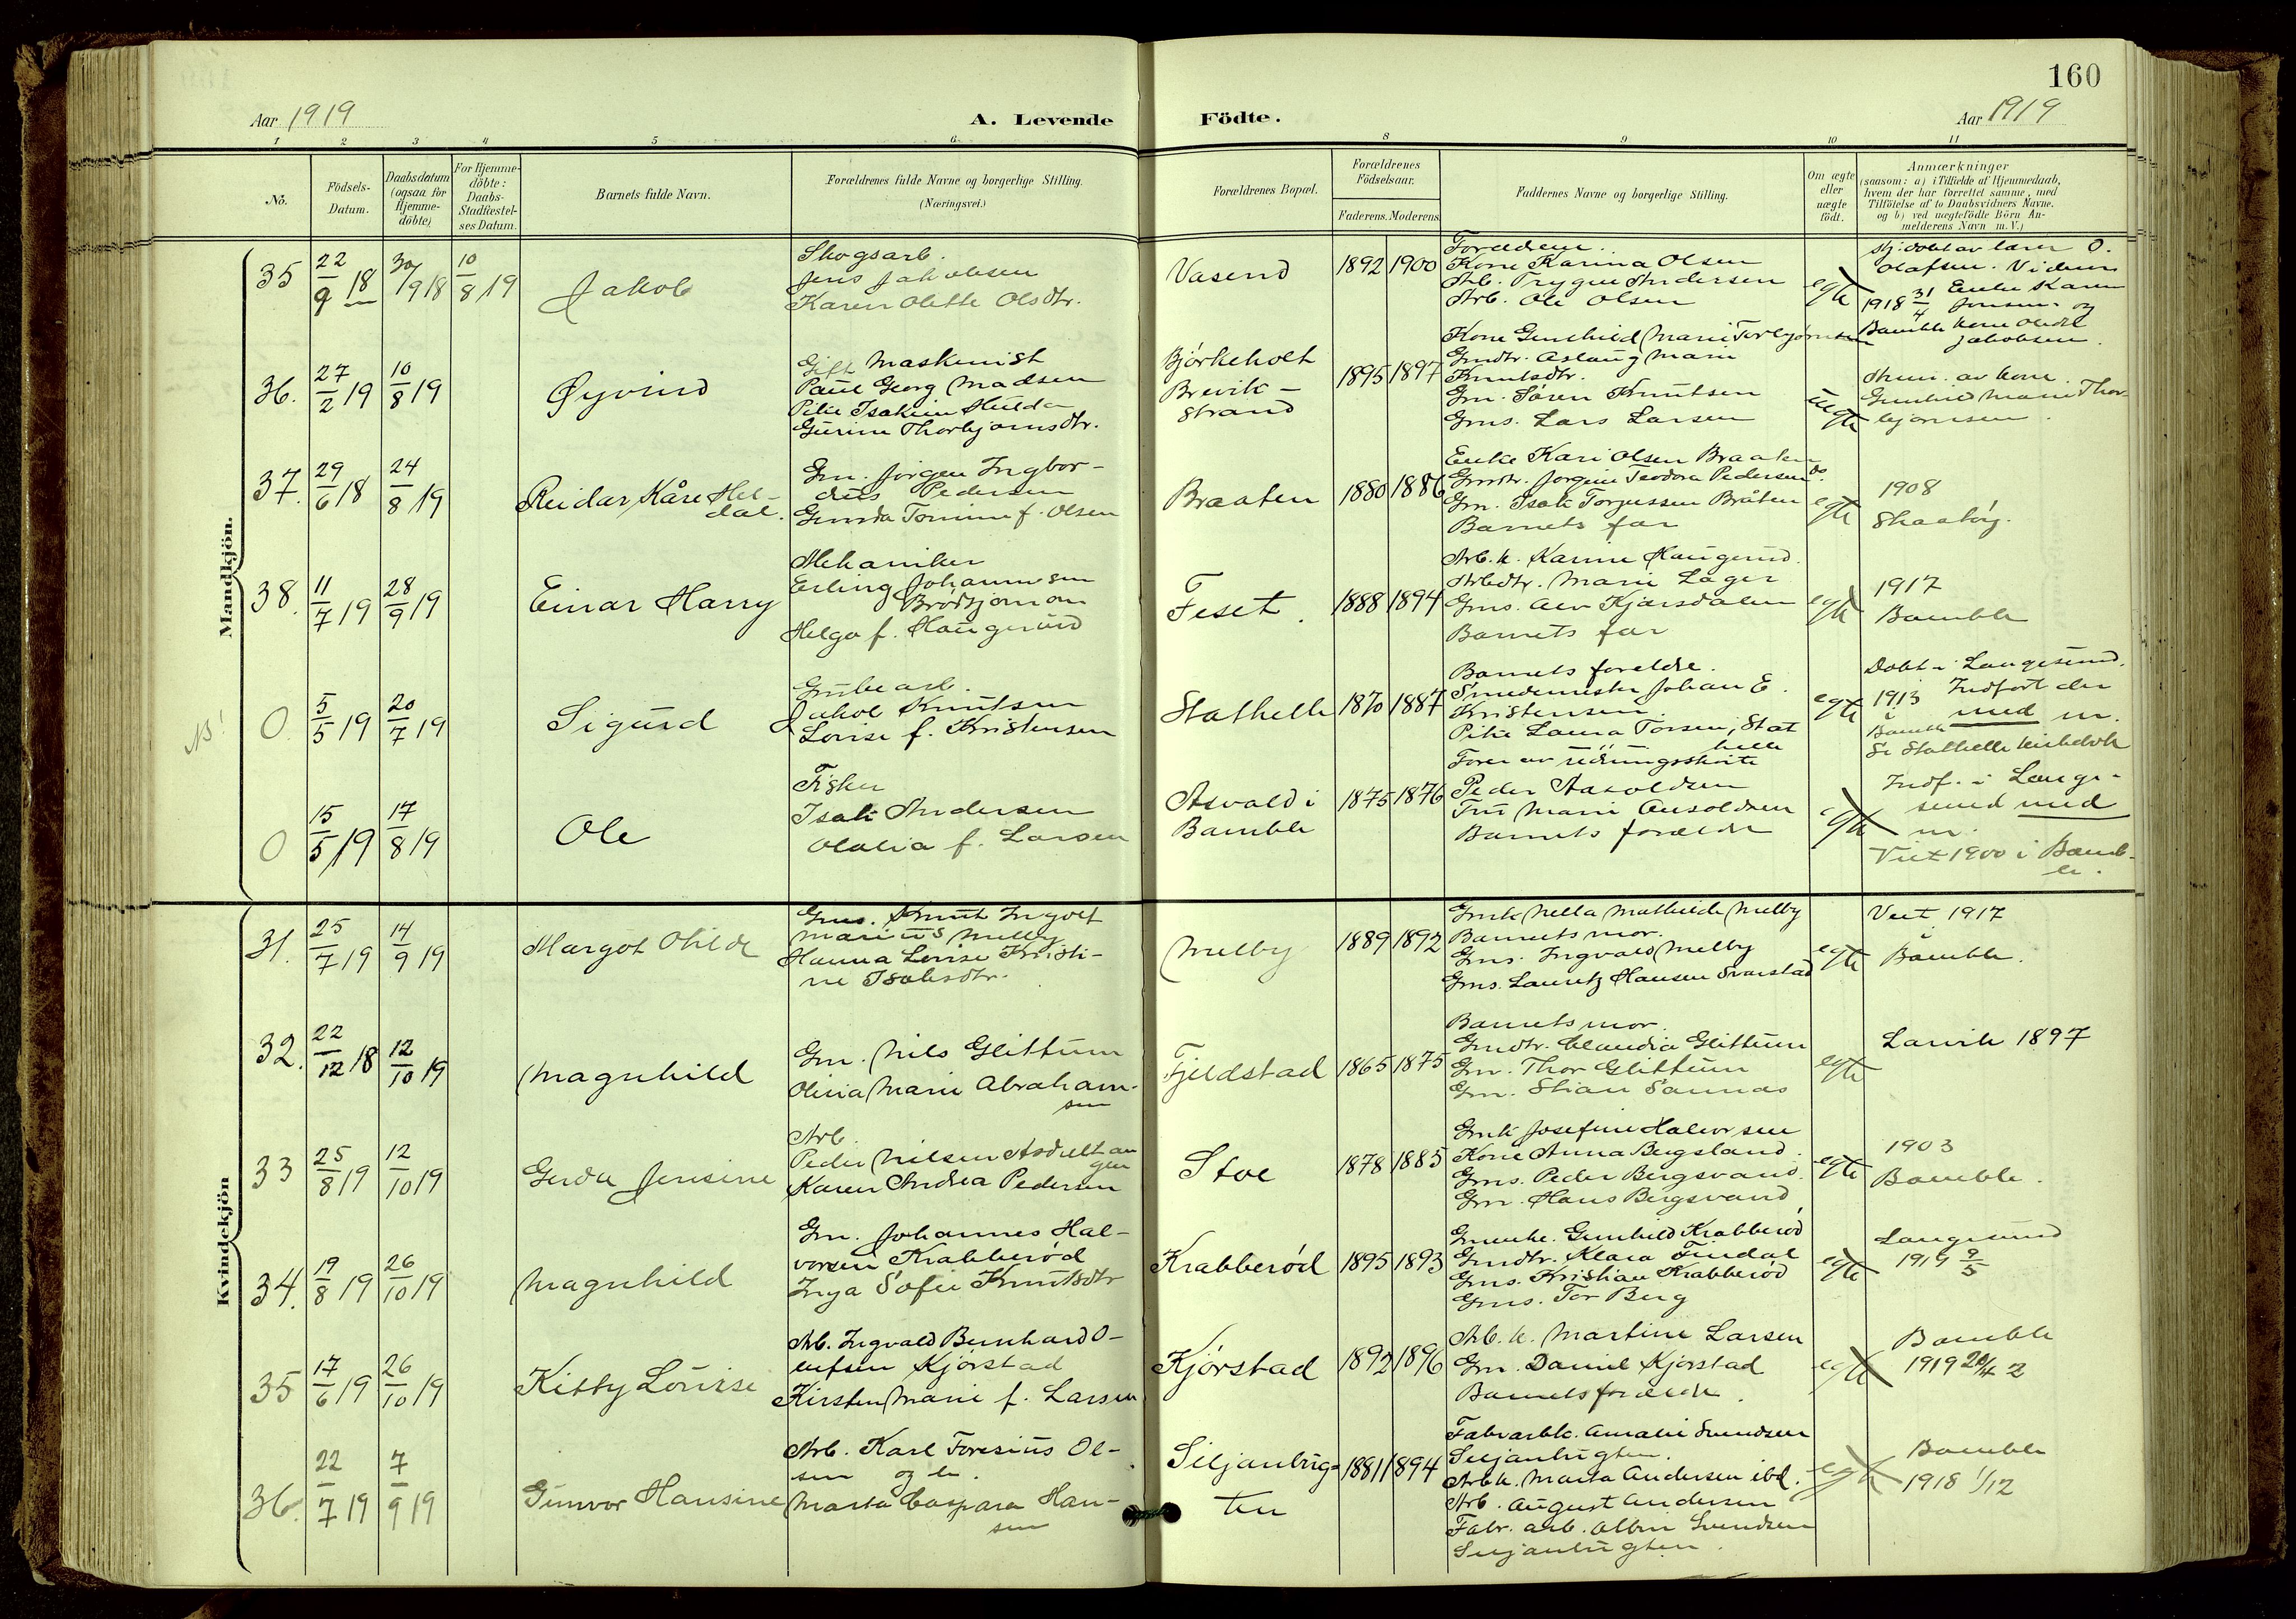 160
Aar 1919
A. Levende
Födte.
Aar 1919
1 2 3 4 5 6 8 9 10 11
Nö.
Födsels-
Datum.
Daabsdatum
(ogsaa for
Hjemme-
döbte)
For Hjemme-
döbte:
Daabs-
Stadfæstel-
ses Datum.
Barnets fulde Navn.
Forældrenes fulde Navne og borgerlige Stilling.
(Næringsvei.)
Forældrenes Bopæl.
Forældrenes
Födselsaar.
Faderens. Moderens
Faddernes Navne og borgerlige Stilling.
Om ægte
eller
uægte
födt.
Anmærkninger
(saasom: a) i Tilfælde af Hjemmedaab,
hvem der har forrettet samme, med
Tilföielse af to Daabsvidners Navne.
og b) ved uægtefödte Börn An-
melderens Navn m. V.)
Mandkjön.
35
22/9 18
30/9 18
10/8 19
Jakob
Skogsarb.
Jens Jakobsen
Karen Olette Olsdtr.
Vasend
1892 1900
Foreldrene.
Kone Karina Olsen
Arb. Trygve Andersen
Arb. Ole Olsen
egte
hj. døbt av lærer O.
Olafsen. Vidner
Enke Karen
1918 31/4 Jensen og
Bamble kone
Jakobsen.
36.
27/2 19
10/8 19
Øyvind
Gift Maskinist
Paul Georg Madsen
Pike Isakine Hulda
Gurine Thorbjørnsdtr.
Bjørkeholt
Brevik-
strand
1895 1897
Kone Gunhild Marie Torbjørnsen
Gmdtr. Aslaug Marie
Knutsdtr.
Gm. Søren Knutsen
Gms. Lars Larsen
uegte
Anm. av kone
Gunhild Marie Thor-
bjørnsen.
37.
29/6 18
24/8 19
Reidar Kåre Hel-
dal.
Gm. Jørgen Ingbor-
dius Pedersen
Gunda Tomine f. Olsen
Braaten
1880 1886
Enke Kari Olsen Braaten
Gmdtr. Jorgine Teodora Pedersen do.
Gm. Isak Torgussen Bråten
Barnets far
egte
1908
Skaatøy.
38.
11/7 19
28/9 19
Einar Harry
Mekaniker
Erling Johannesen
Helga f. Haugerud
Feset.
1888 1894
Arb. k. Karine Haugerud.
Arbdtr. Marie Lager
Gms. Alv Kjærsdalen
Barnets far
egte
1917
Bamble
NB!
O.
5/5 19
20/7 19
Sigurd
Grubearb.
Jakob Knutsen
Lovise f. Kristensen
Stathelle
1870 1887
Barnets foreldre.
Smedemester Johan E.
Kristensen.
Pike Laura Torsen, Stat
helle
egte
Døbt i Langesund.
1913 Indført der
Bamble med nr.
Se Stathelle kirkebok
O
15/5 19
17/8 19
Ole
Fisker
Isak Andersen
Olalia f. Larsen
Asvald i
Bamble
1875 1876
Fører av redningsskøite
Peder Aasoldsen
Fru Marie Aasoldsen
Barnets forældre
egte
Indf. i Lange-
sund med
nr.
Viet 1900 i Bamb-
le.
Kvindekjön
31.
25/7 19
14/9 19
Margot Otilde
Gms. Knut Ingolf
Marius Melby
Hanna Lovise Kristi-
ne Isaksdtr.
Melby
1889 1892
Gmk Nella Mathilde Melby
Barnets mor.
Gms. Ingvald Melby
Gms. Lauritz Hansen Svarstad
egte
Viet 1917
Bamble.
32.
22/12 18
12/10 19
Magnhild
Gm. Nils Glittum
Olivia Marie Abraham-
sen
Fjeldstad
1865 1875
Barnets mor.
Gmdtr. Claudia Glittum
Gm. Thor Glittum
Gm. Stian Sannas
egte
Larvik 1897
33
25/8 19
12/10 19
Gerda Jensine
Arb.
Peder Nilsen Asdeltan
gen
Karen Andrea Pedersen
Stoe
1878 1885
Gmk Josefine Halvorsen
Kone Anna Bergsland.
Gms. Peder Bergsvand.
Gm. Hans Bergsvand
egte
1903
Bamble.
34.
19/8 19
26/10 19
Magnhild
Gm. Johannes Hal-
vorsen Krabberød
Inga Sofie Knutsdtr
Krabberød
1895 1893
Gmenke. Gunhild Krabberød
Gmdtr. Klara Findal
Gms. Kristian Krabberød
Gms. Tor Berg
egte
Langesund
1919 9/5
35
17/6 19
26/10 19
Kitty Lovise
Arb. Ingvald Bernhard O-
lufsen Kjørstad
Kirsten Marie f. Larsen
Kjørstad
1892 1896
Arb. k. Martine Larsen
Gm. Daniel Kjørstad
Barnets forældre.
egte
Bamble
1919
36.
22/7 19
7/9 19
Gunvor Hansine
Arb. Karl Foresius Ol-
sen og h.
Marta Caspara Han-
sen
Siljanbug-
ten
1881 1894
Fabrarbk. Amalie Svendsen
Siljanbugten.
Arbk. Marta Andersen ibd.
Arb. August Andersen
Fabr. arb. Albin Svendsen
Siljanbugten.
egte
Bamble
1918 1/12